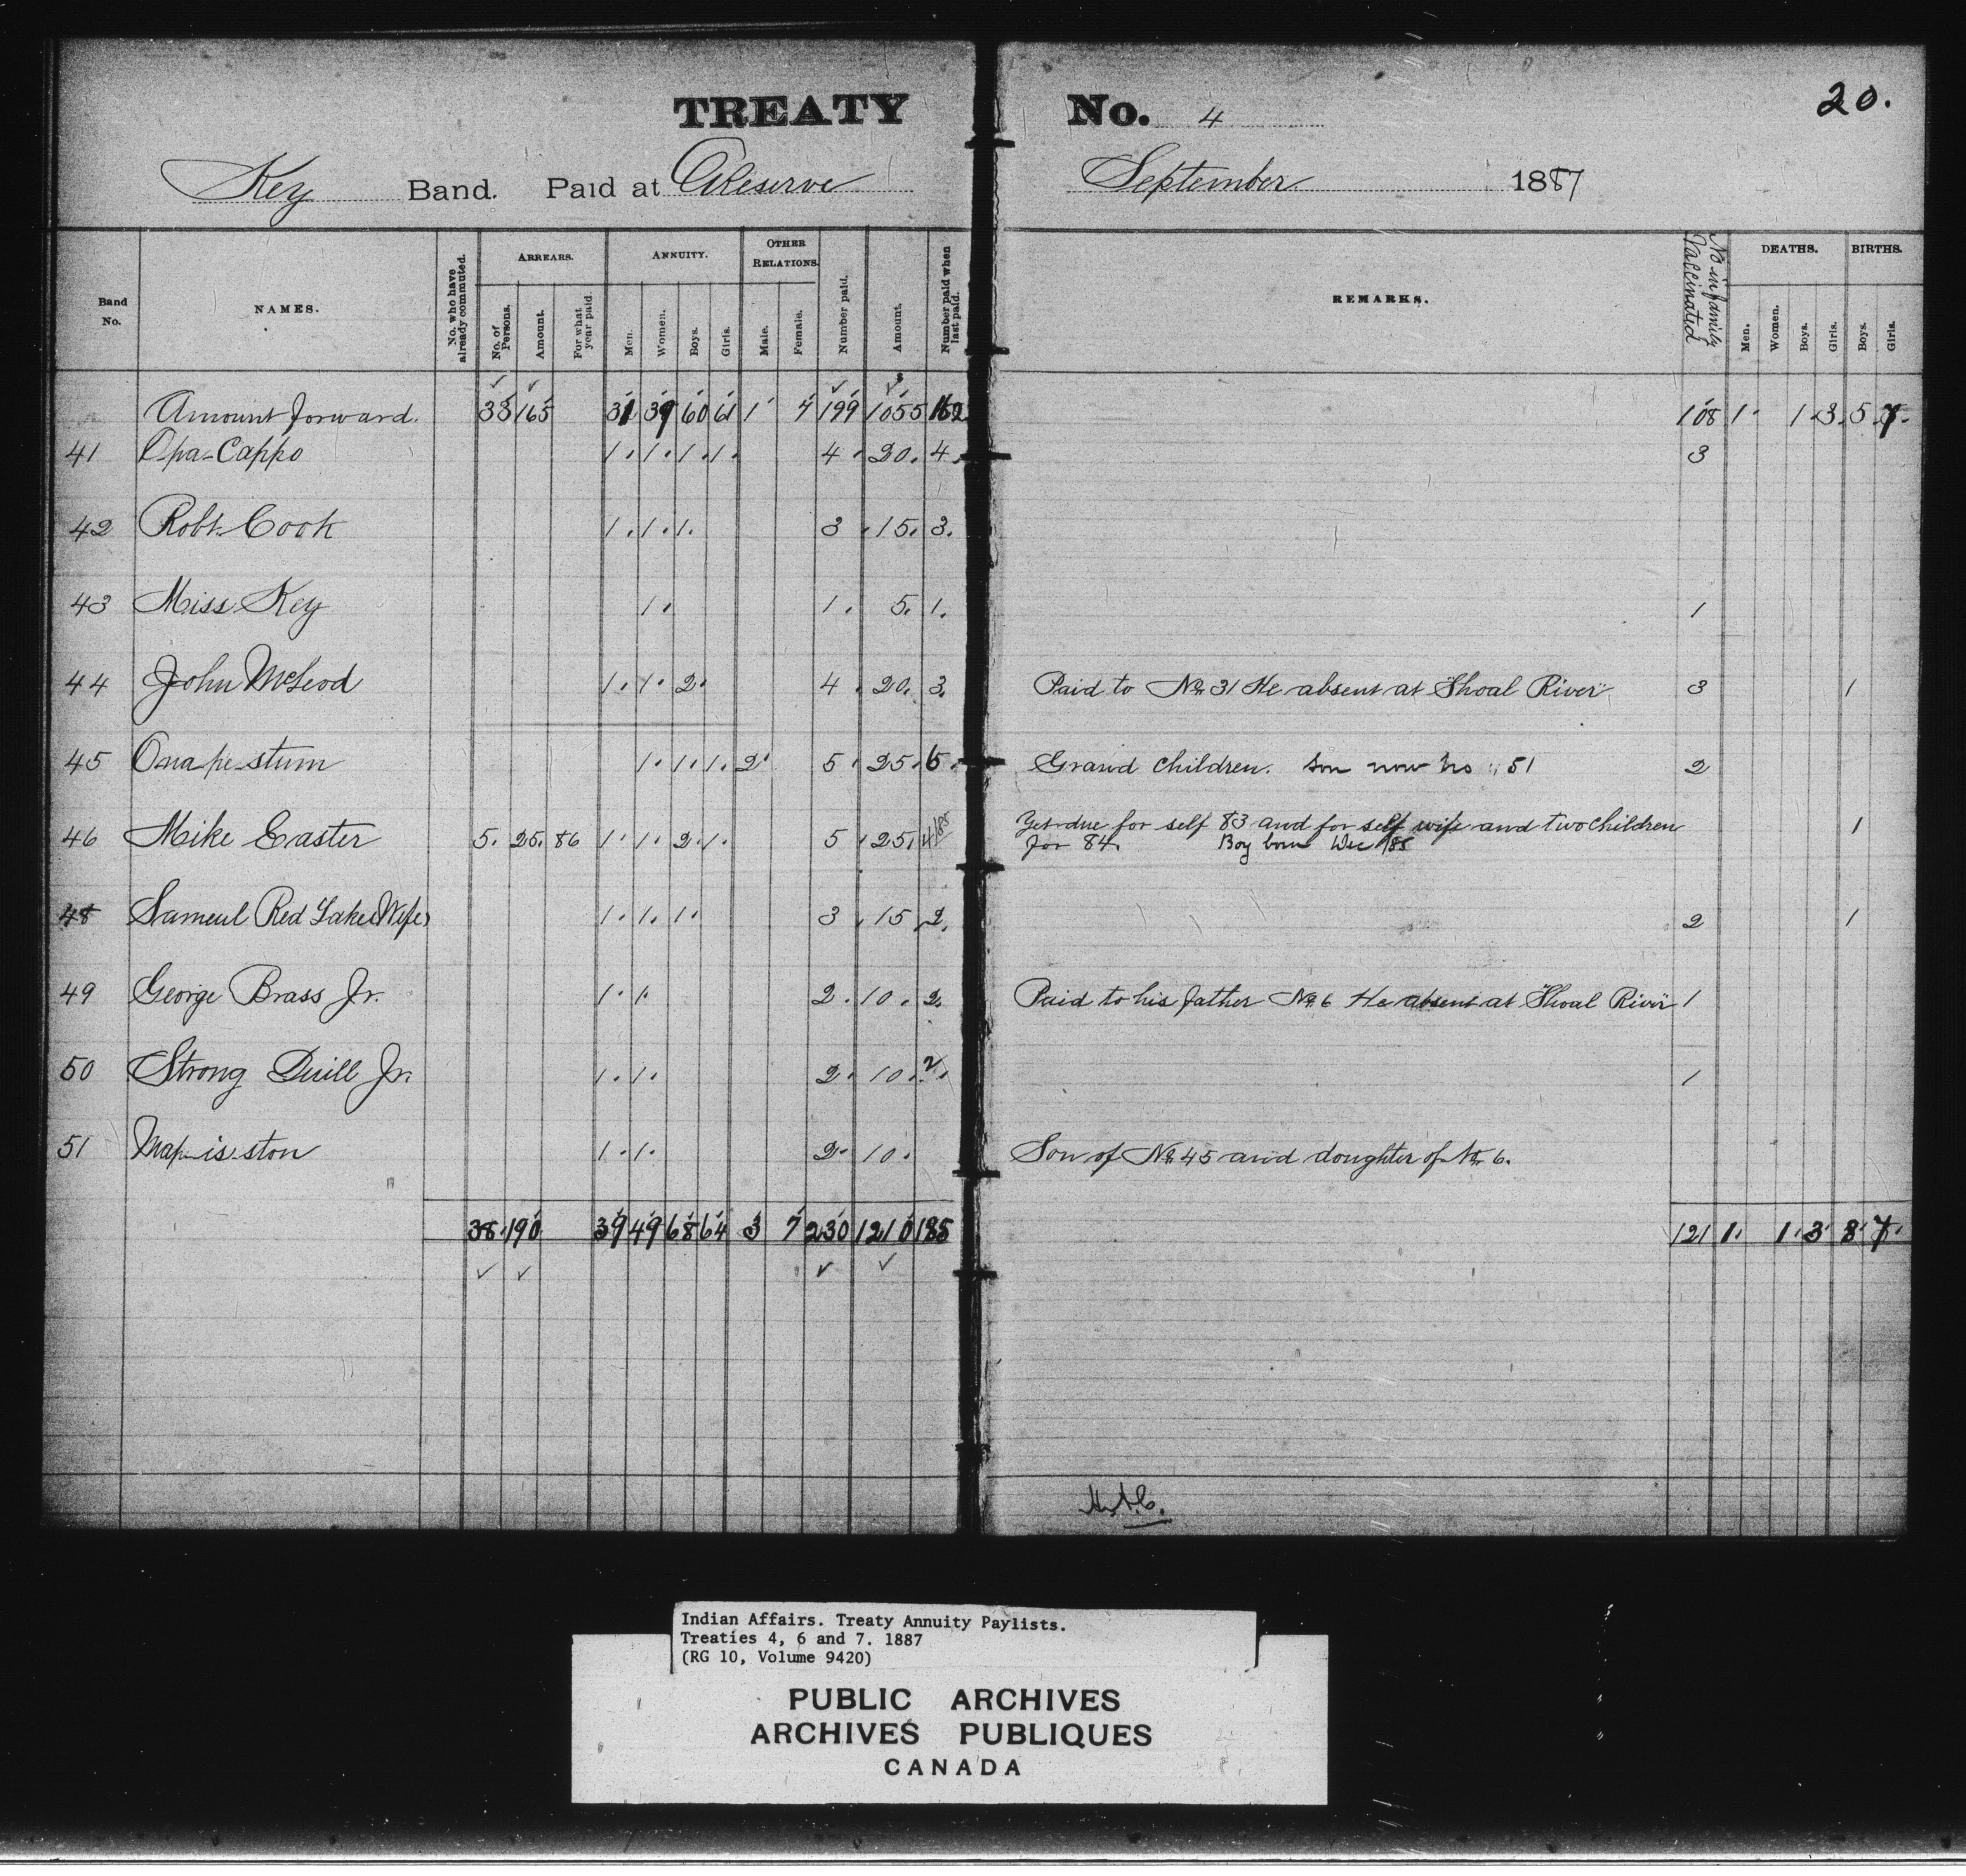 TREATY No. 4
20.
Key Band. Paid at Reserve September 1887
Band No.
NAMES.
No. who have already commuted.
ARREARS.
No. of Persons.
Amount.
For what year paid.
ANNUITY.
Men.
Women.
Boys.
Girls.
OTHER RELATIONS.
Male.
Female.
Number paid.
Amount.
Number paid when last paid.
REMARKS.
No in family Vaccinated
DEATHS.
Men.
Women.
Boys.
Girls.
BIRTHS.
Boys.
Girls.
Amount forward. 33 165 31 39 60 61 1 4 199 1055 162 108 1 1 3 5 7
41 Opa-Cappo 1 1 1 1 4 20. 4. 3
42 Robt. Cook 1 1 1 3 15. 3.
43 Miss Key 1 1 5. 1. 1
44 John McLeod 1 1 2 4 20. 3. Paid to No. 31 He absent at "Shoal River" 3 1
45 Ona-pe-stum 1 1 1 2 5 25. 6. Grand Children. Son now No 51 2
46 Mike Easter 5. 25. 86 1 1 2 1 5 25. 4/85 Yet due for self 83 and for self wife and two children 1
for 84. Boy born Dec /85
48 Sameul Red Lake (Wife) 1 1 1 3 15 2. 2 1
49 George Brass Jr. 1 1 2 10. 2. Paid to his father No. 6 He absent at "Shoal River" 1
50 Strong Quill Jr. 1 1 2 10. 2. 1
51 Map-is-ston 1 1 2 10. Son of No. 45 and doughter of No. 6.
38 190 39 49 68 64 3 7 230 1210 185 121 1. 1 3 8 7
Indian Affairs. Treaty Annuity Paylists.
Treaties 4, 6 and 7. 1887
(RG 10, Volume 9420)
PUBLIC ARCHIVES
ARCHIVES PUBLIQUES
CANADA